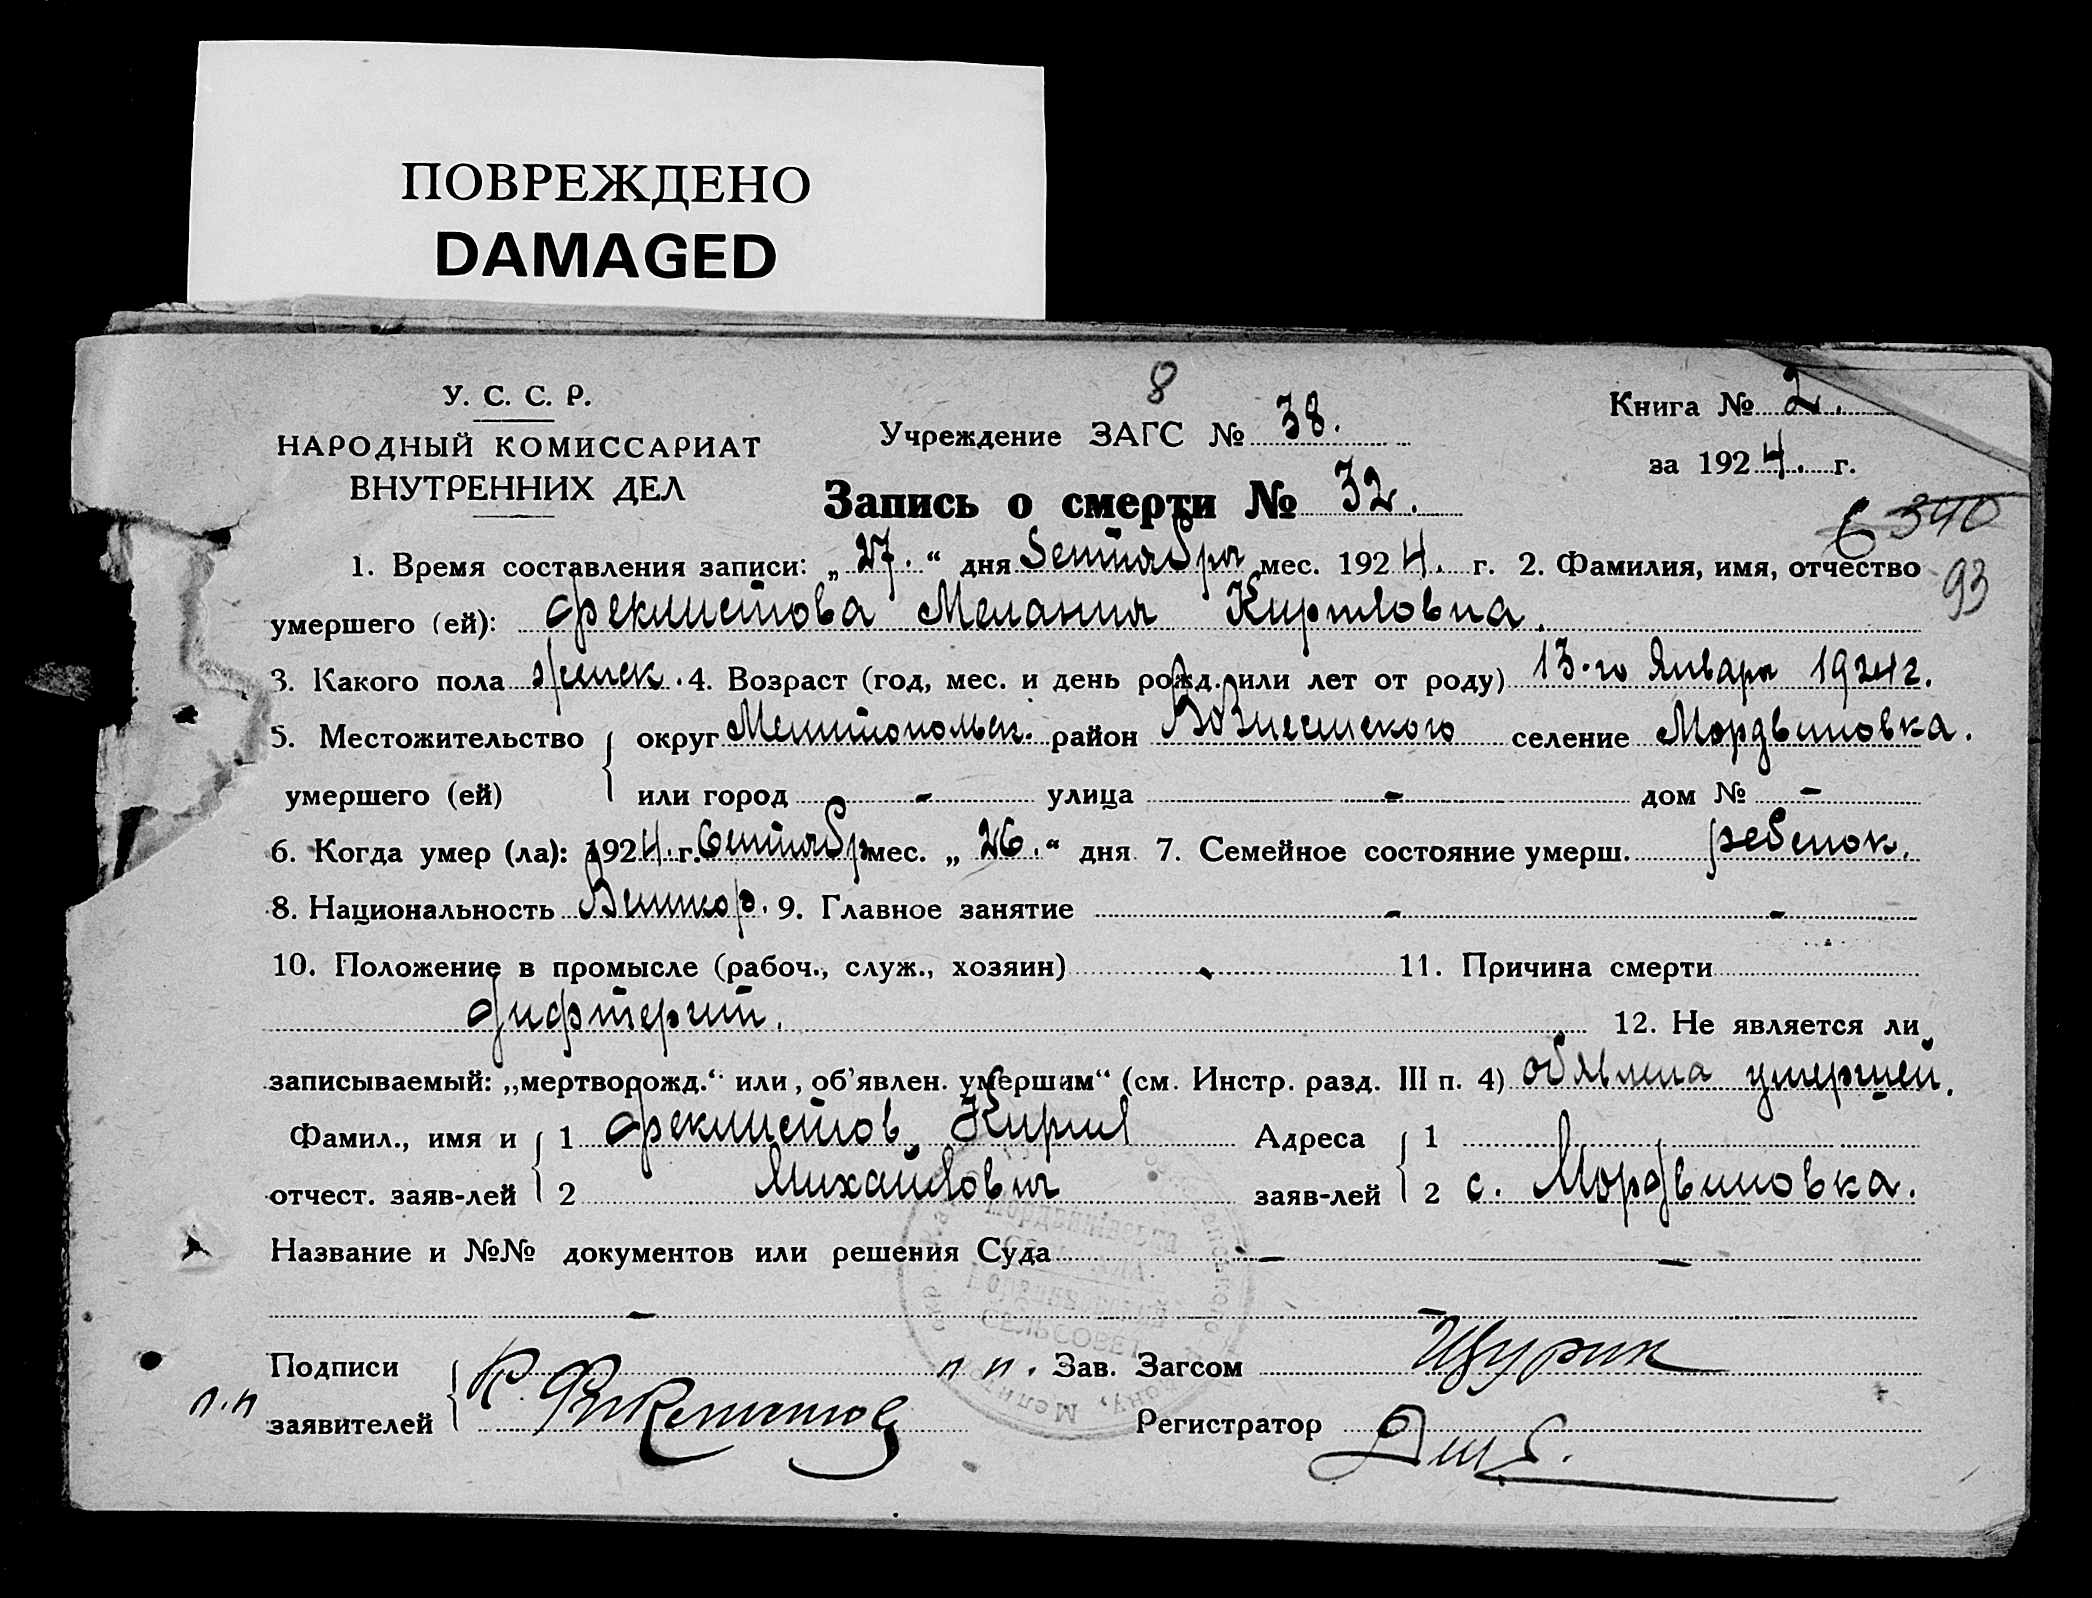 ПОВРЕЖДЕНО
DAMAGED
8
У. С. С. Р.
НАРОДНЫЙ КОМИССАРИАТ
ВНУТРЕННИХ ДЕЛ
Учреждение ЗАГС № 38.
Книга № 2.
за 1924. г.
Запись о смерти № 32.
6 340
93
1. Время составления записи: „27.“ дня Сентября мес. 1924. г. 2. Фамилия, имя, отчество
умершего (ей): Феклистова Мелания Кириловна.
3. Какого пола женск. 4. Возраст (год, мес. и день рожд. или лет от роду) 13-го Января 1924 г.
5. Местожительство округ Мелитопольск. район Вознесенского селение Мордвиновка.
умершего (ей) или город - улица - дом № -
6. Когда умер (ла): 1924. г. Сентябр мес. „26.“ дня 7. Семейное состояние умерш. ребенок.
8. Национальность Великор. 9. Главное занятие - -
10. Положение в промысле (рабоч., служ., хозяин) - 11. Причина смерти
дифтерит. 12. Не является ли
записываемый: „мертворожд.“ или „об’явлен. умершим“ (см. Инстр. разд. III п. 4) обявлена умершей.
Фамил., имя и 1 Феклистов, Кирил Адреса 1
отчест. заяв-лей 2 Михайлович заяв-лей 2 с. Мордвиновка.
Название и №№ документов или решения Суда - -
- -
Подписи К п. п. Зав. Загсом Щурик
п.п заявителей Регистратор
СЕЛЬСОВЕТ